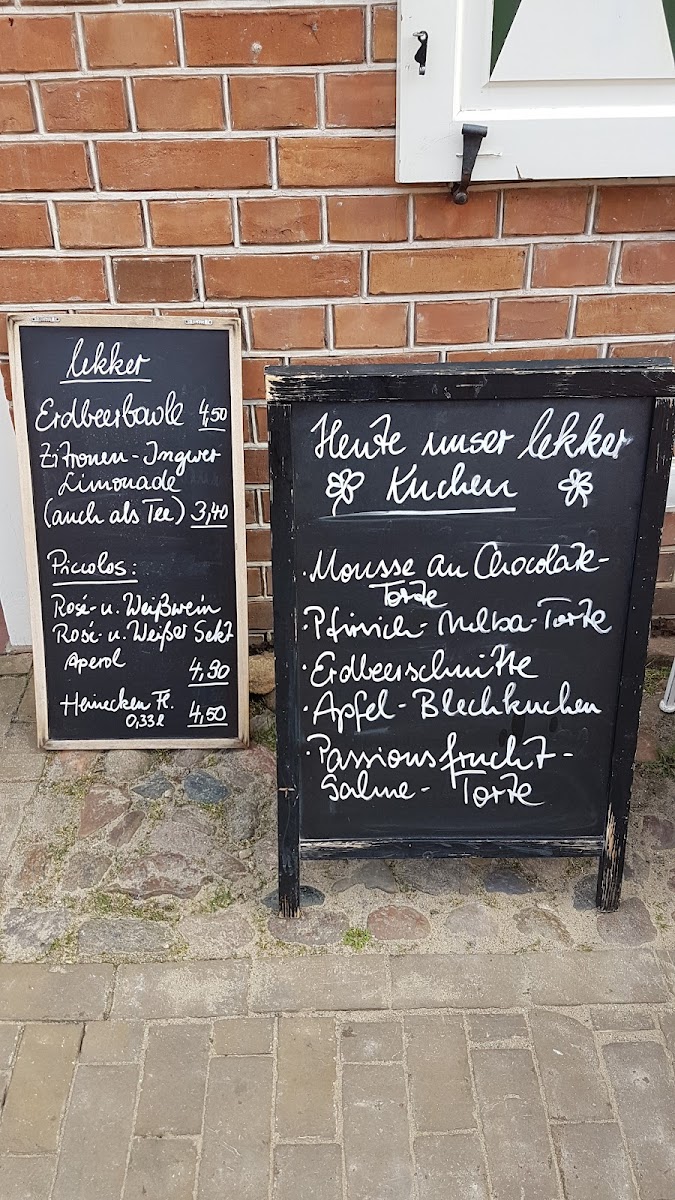 lekker
Erdbeerbowle 4,50
Zitronen-Ingwer
Limonade
(auch als Tee) 3,40
Piccolos:
Rosé- u. Weißwein
Rosé- u. Weißer Sekt
Aperol
4,90
Heinecken Fl.
0,33 l 4,50
Heute unser lekker
Kuchen
· Mousse au Chocolate-
Torte
· Pfirsich-Melba-Torte
· Erdbeerschnitte
· Apfel-Blechkuchen
· Passionsfrucht-
Sahne-Torte